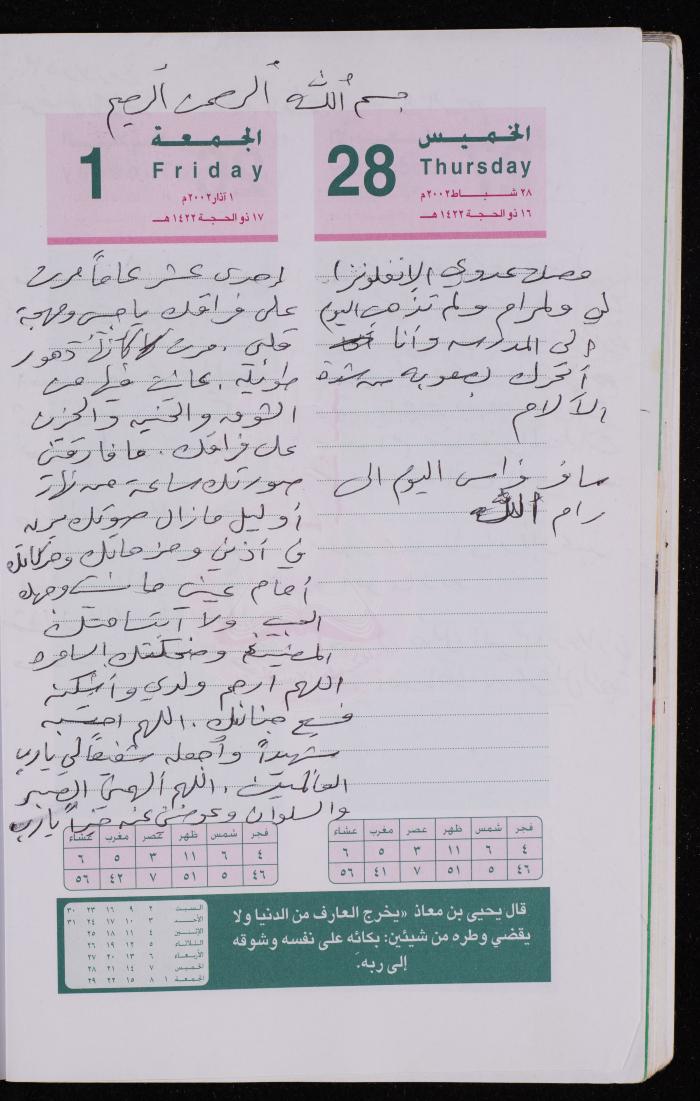 بسم الله الرحمن الرحيم
الخميس
28
Thursday
٢٨ شباط ٢٠٠٢م
١٦ ذو الحجة ١٤٢٢ هـ
حصلت عدوى الإنفلونزا
لي ولمرام ولم تذهب اليوم
الى المدرسه وأنا
أتحرك بصعوبه من شدة
الآلام
سافر فراس اليوم الى
رام الله
الجمعة
1
Friday
١ آذار ٢٠٠٢م
١٧ ذو الحجة ١٤٢٢ هـ
إحدى عشر عاماً مرت
على فراقك يا حبيبي ومهجة
قلبي . مرت كأنها دهور
طويله . عانيت فيها من
الشوق والحنين والحزن
على فراقك . ما فارقتني
صورتك ساعة من نهار
أو ليل مازال صوتك يرن
في أذني ومزحاتك وحركاتك
أمام عيني ما نسيت وجهك
الحبيب ولا ابتسامتك
المضيئة وضحكتك الساخره
اللهم ارحم ولدي وأسكنه
فسيح جناتك . اللهم احتسبه
شهيداً وأجعله شفيعاً لي يارب
العالمين . اللهم ألهمني الصبر
والسلوان وعوضني عنه خيراً يارب
فجر شمس ظهر عصر مغرب عشاء
٤ ٦ ١١ ٣ ٥ ٦
٤٦ ٥ ٥١ ٧ ٤١ ٥٦
فجر شمس ظهر عصر مغرب عشاء
٤ ٦ ١١ ٣ ٥ ٦
٤٦ ٥ ٥١ ٧ ٤٢ ٥٦
قال يحيى بن معاذ «يخرج العارف من الدنيا ولا
يقضي وطره من شيئين: بكائه على نفسه وشوقه
إلى ربه.
السبت ٢ ٩ ١٦ ٢٣ ٣٠
الأحد ٣ ١٠ ١٧ ٢٤ ٣١
الإثنين ٤ ١١ ١٨ ٢٥
الثلاثاء ٥ ١٢ ١٩ ٢٦
الأربعاء ٦ ١٣ ٢٠ ٢٧
الخميس ٧ ١٤ ٢١ ٢٨
الجمعة ١ ٨ ١٥ ٢٢ ٢٩